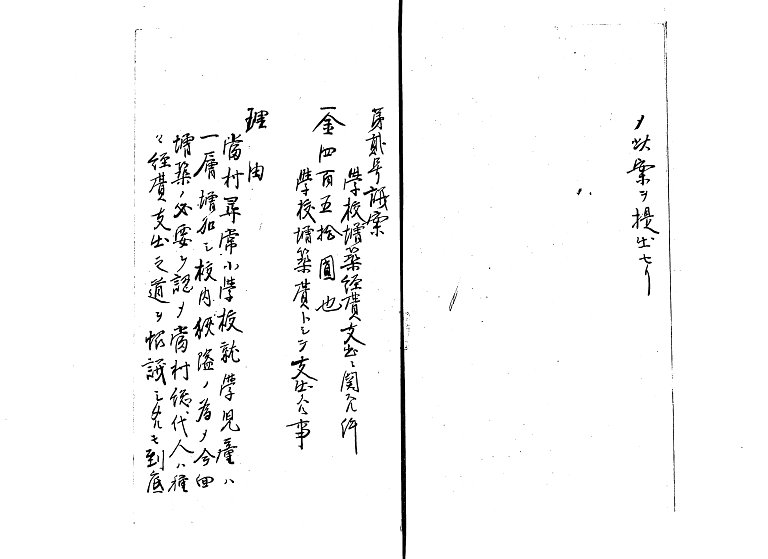 メ此案ヲ提出セリ
第貳号議案
學校増築経費支出ニ関スル件
一金四百五拾圓也
學校増築費トシテ支出スル事
理由
當村尋常小學校就學児童ハ
一層増加シ校内狹隘ノ為メ今回
増築ノ必要ヲ認メ當村総代人ハ種
々経費支出之道ヲ協議シタルモ到底